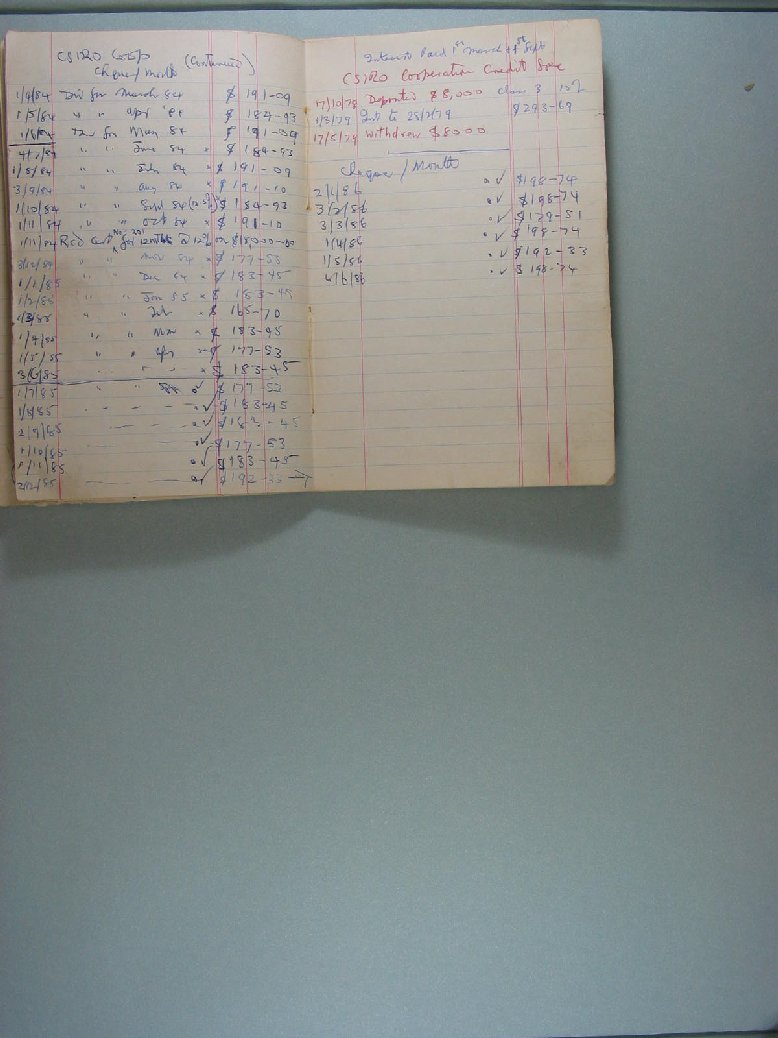 CSIRO Coop
Cheque/month (Continued)
1/4/84 Div for March 84 $ 191-09
1/5/84 " " Apr '84 $ 184-93
1/6/84 Div for May 84 $ 191-09
4/7/84 " " June 84 " $ 184-93
1/8/84 " " July 84 " $ 191-09
3/9/84 " " Aug 84 " $ 191-10
1/10/84 " " Sept 84 $ 184-93
1/11/84 " " Oct 84 " $ 191-10
1/11/84 Rec'd Cert No. 201 for 12 mths @ 12% on $18,000-00
3/12/84 " " Nov 84 " $ 177-53
1/1/85 " " Dec 84 " $ 183-45
1/2/85 " " Jan 85 " $ 183-45
1/3/85 " " Feb " $ 165-70
1/4/85 " " Mar " $ 183-45
1/5/85 " " Apr " $ 177-53
3/6/85 " " " $ 183-45
1/7/85 " " " ✓ $ 177-52
1/8/85 " ✓ $ 183-45
2/9/85 " ✓ $ 183-45
1/10/85 " ✓ $ 177-53
1/11/85 " ✓ $ 183-45
2/12/85 " ✓ $ 192-33 →
Interest Paid 1st March & 1st Sept
CSIRO Cooperative Credit Soc
17/10/78 Deposited $8,000 Class 3 10%
1/3/79 Int to 28/2/79 $293-69
17/5/79 withdrew $8000
Cheque/Month
2/1/86 " ✓ $198-74
3/2/86 " ✓ $198-74
3/3/86 " ✓ $179-51
1/4/86 " ✓ $198-74
1/5/86 " ✓ $192-33
4/6/86 " ✓ $198-74